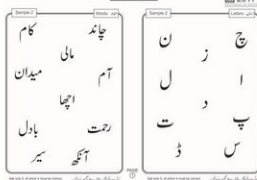 Sample 2
Words
چاند
کام
مالی
آم
میدان
اچھا
رحمت
بادل
آنکھ
سیر
PAGE
1
Sample 2
Letters
چ
ن
ز
ا
ل
د
پ
ت
س
ڈ